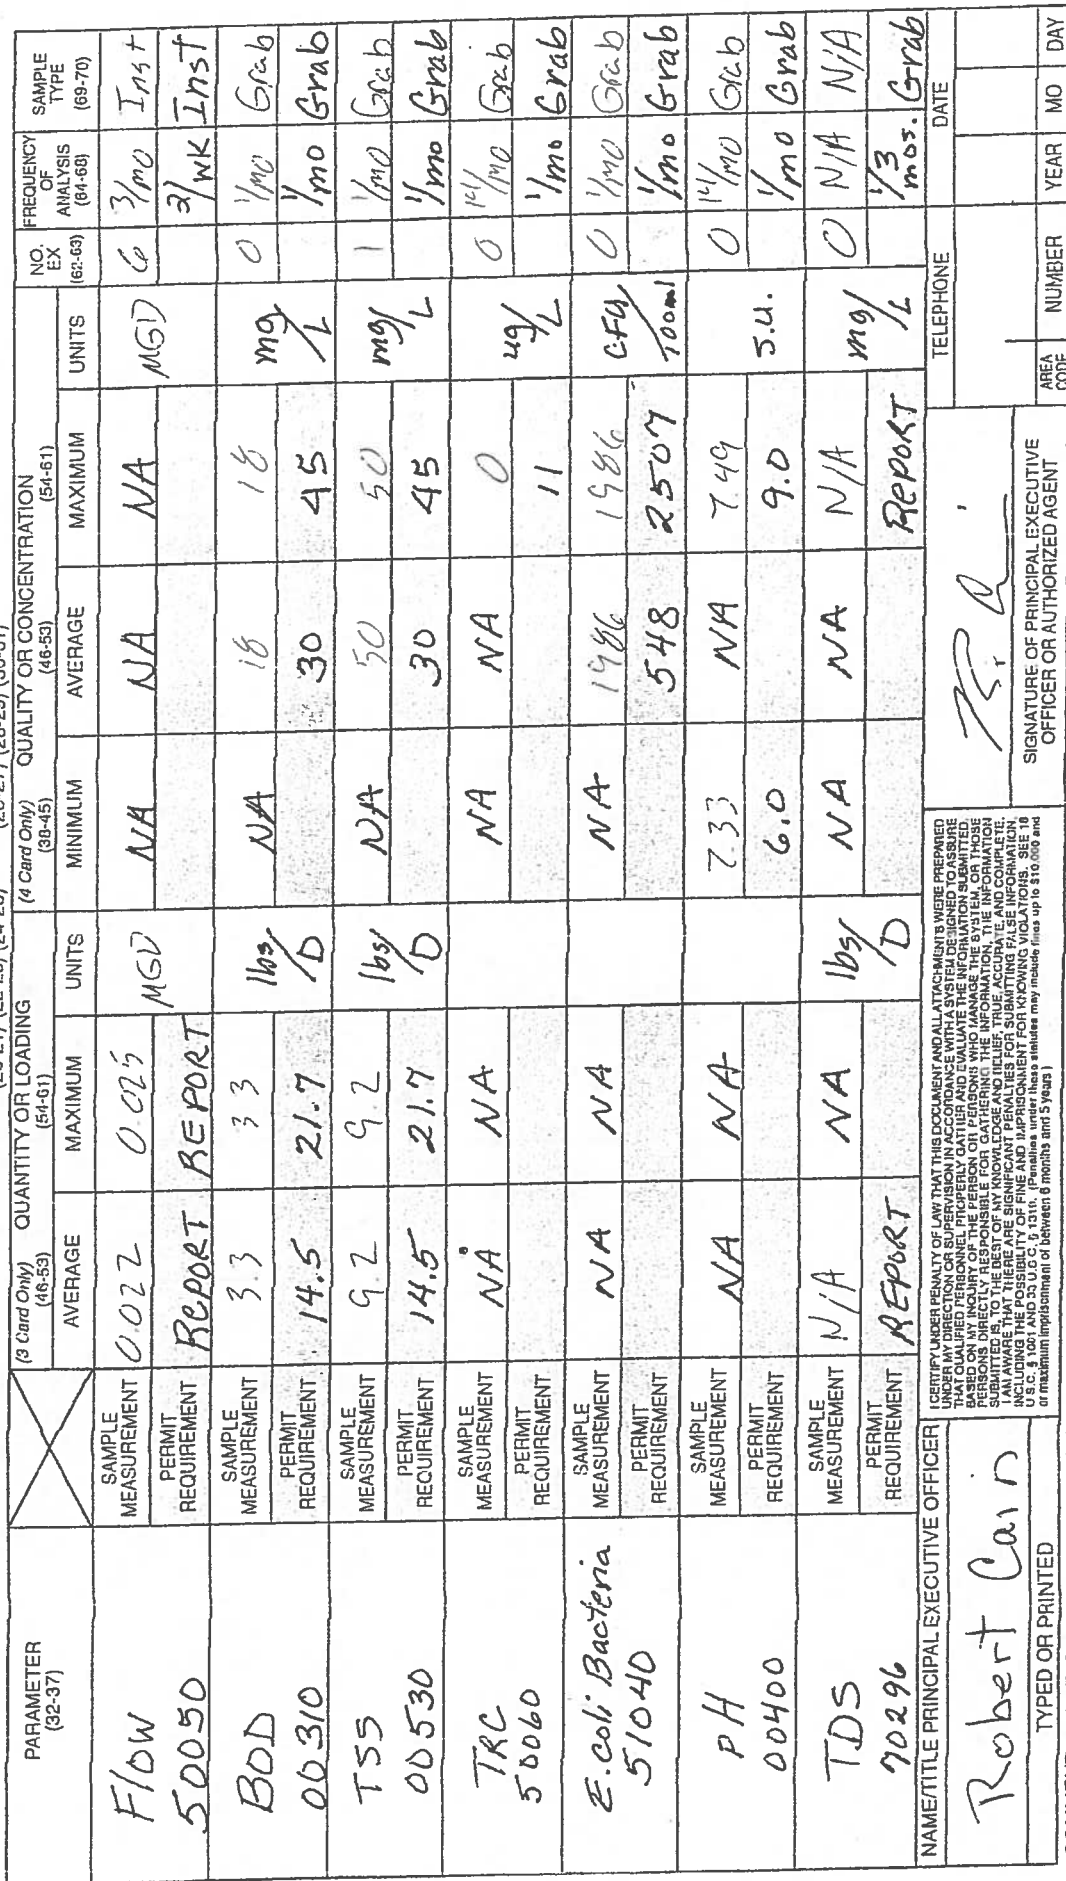 PARAMETER
(32-37)
(3 Card Only) QUANTITY OR LOADING
(46-53) (54-61)
AVERAGE MAXIMUM UNITS
(4 Card Only) QUALITY OR CONCENTRATION
(38-45) (46-53) (54-61)
MINIMUM AVERAGE MAXIMUM UNITS
NO. EX (62-63)
FREQUENCY OF ANALYSIS (64-68)
SAMPLE TYPE (69-70)
Flow SAMPLE MEASUREMENT 0.022 0.025 MGD NA NA NA MGD 3/mo Inst
50050 PERMIT REQUIREMENT REPORT REPORT 2/WK Inst
BOD SAMPLE MEASUREMENT 3.3 3.3 lbs/D NA 18 18 mg/L 0 1/mo Grab
00310 PERMIT REQUIREMENT 14.5 21.7 30 45 1/mo Grab
TSS SAMPLE MEASUREMENT 9.2 9.2 lbs/D NA 50 50 mg/L 1 1/mo Grab
00530 PERMIT REQUIREMENT 14.5 21.7 30 45 1/mo Grab
TRC SAMPLE MEASUREMENT NA NA NA NA 0 ug/L 0 /mo Grab
50060 PERMIT REQUIREMENT 11 1/mo Grab
E. coli Bacteria SAMPLE MEASUREMENT NA NA NA 1986 1986 CFU/100ml 0 1/mo Grab
51040 PERMIT REQUIREMENT 548 2507 1/mo Grab
pH SAMPLE MEASUREMENT NA NA 7.33 NA 7.49 S.U. 0 /mo Grab
00400 PERMIT REQUIREMENT 6.0 9.0 1/mo Grab
TDS SAMPLE MEASUREMENT N/A NA lbs/D NA NA N/A mg/L 0 N/A N/A
70296 PERMIT REQUIREMENT REPORT REPORT 1/3 mos. Grab
NAME/TITLE PRINCIPAL EXECUTIVE OFFICER
Robert Cain
TYPED OR PRINTED
I CERTIFY UNDER PENALTY OF LAW THAT THIS DOCUMENT AND ALL ATTACHMENTS WERE PREPARED
UNDER MY DIRECTION OR SUPERVISION IN ACCORDANCE WITH A SYSTEM DESIGNED TO ASSURE
THAT QUALIFIED PERSONNEL PROPERLY GATHER AND EVALUATE THE INFORMATION SUBMITTED.
BASED ON MY INQUIRY OF THE PERSON OR PERSONS WHO MANAGE THE SYSTEM, OR THOSE
PERSONS DIRECTLY RESPONSIBLE FOR GATHERING THE INFORMATION, THE INFORMATION
SUBMITTED IS, TO THE BEST OF MY KNOWLEDGE AND BELIEF, TRUE, ACCURATE, AND COMPLETE.
I AM AWARE THAT THERE ARE SIGNIFICANT PENALTIES FOR SUBMITTING FALSE INFORMATION,
INCLUDING THE POSSIBILITY OF FINE AND IMPRISONMENT FOR KNOWING VIOLATIONS. SEE 18
U.S.C. § 1001 AND 33 U.S.C. § 1319. (Penalties under these statutes may include fines up to $10,000 and
or maximum imprisonment of between 6 months and 5 years.)
SIGNATURE OF PRINCIPAL EXECUTIVE
OFFICER OR AUTHORIZED AGENT
TELEPHONE DATE
AREA CODE NUMBER YEAR MO DAY